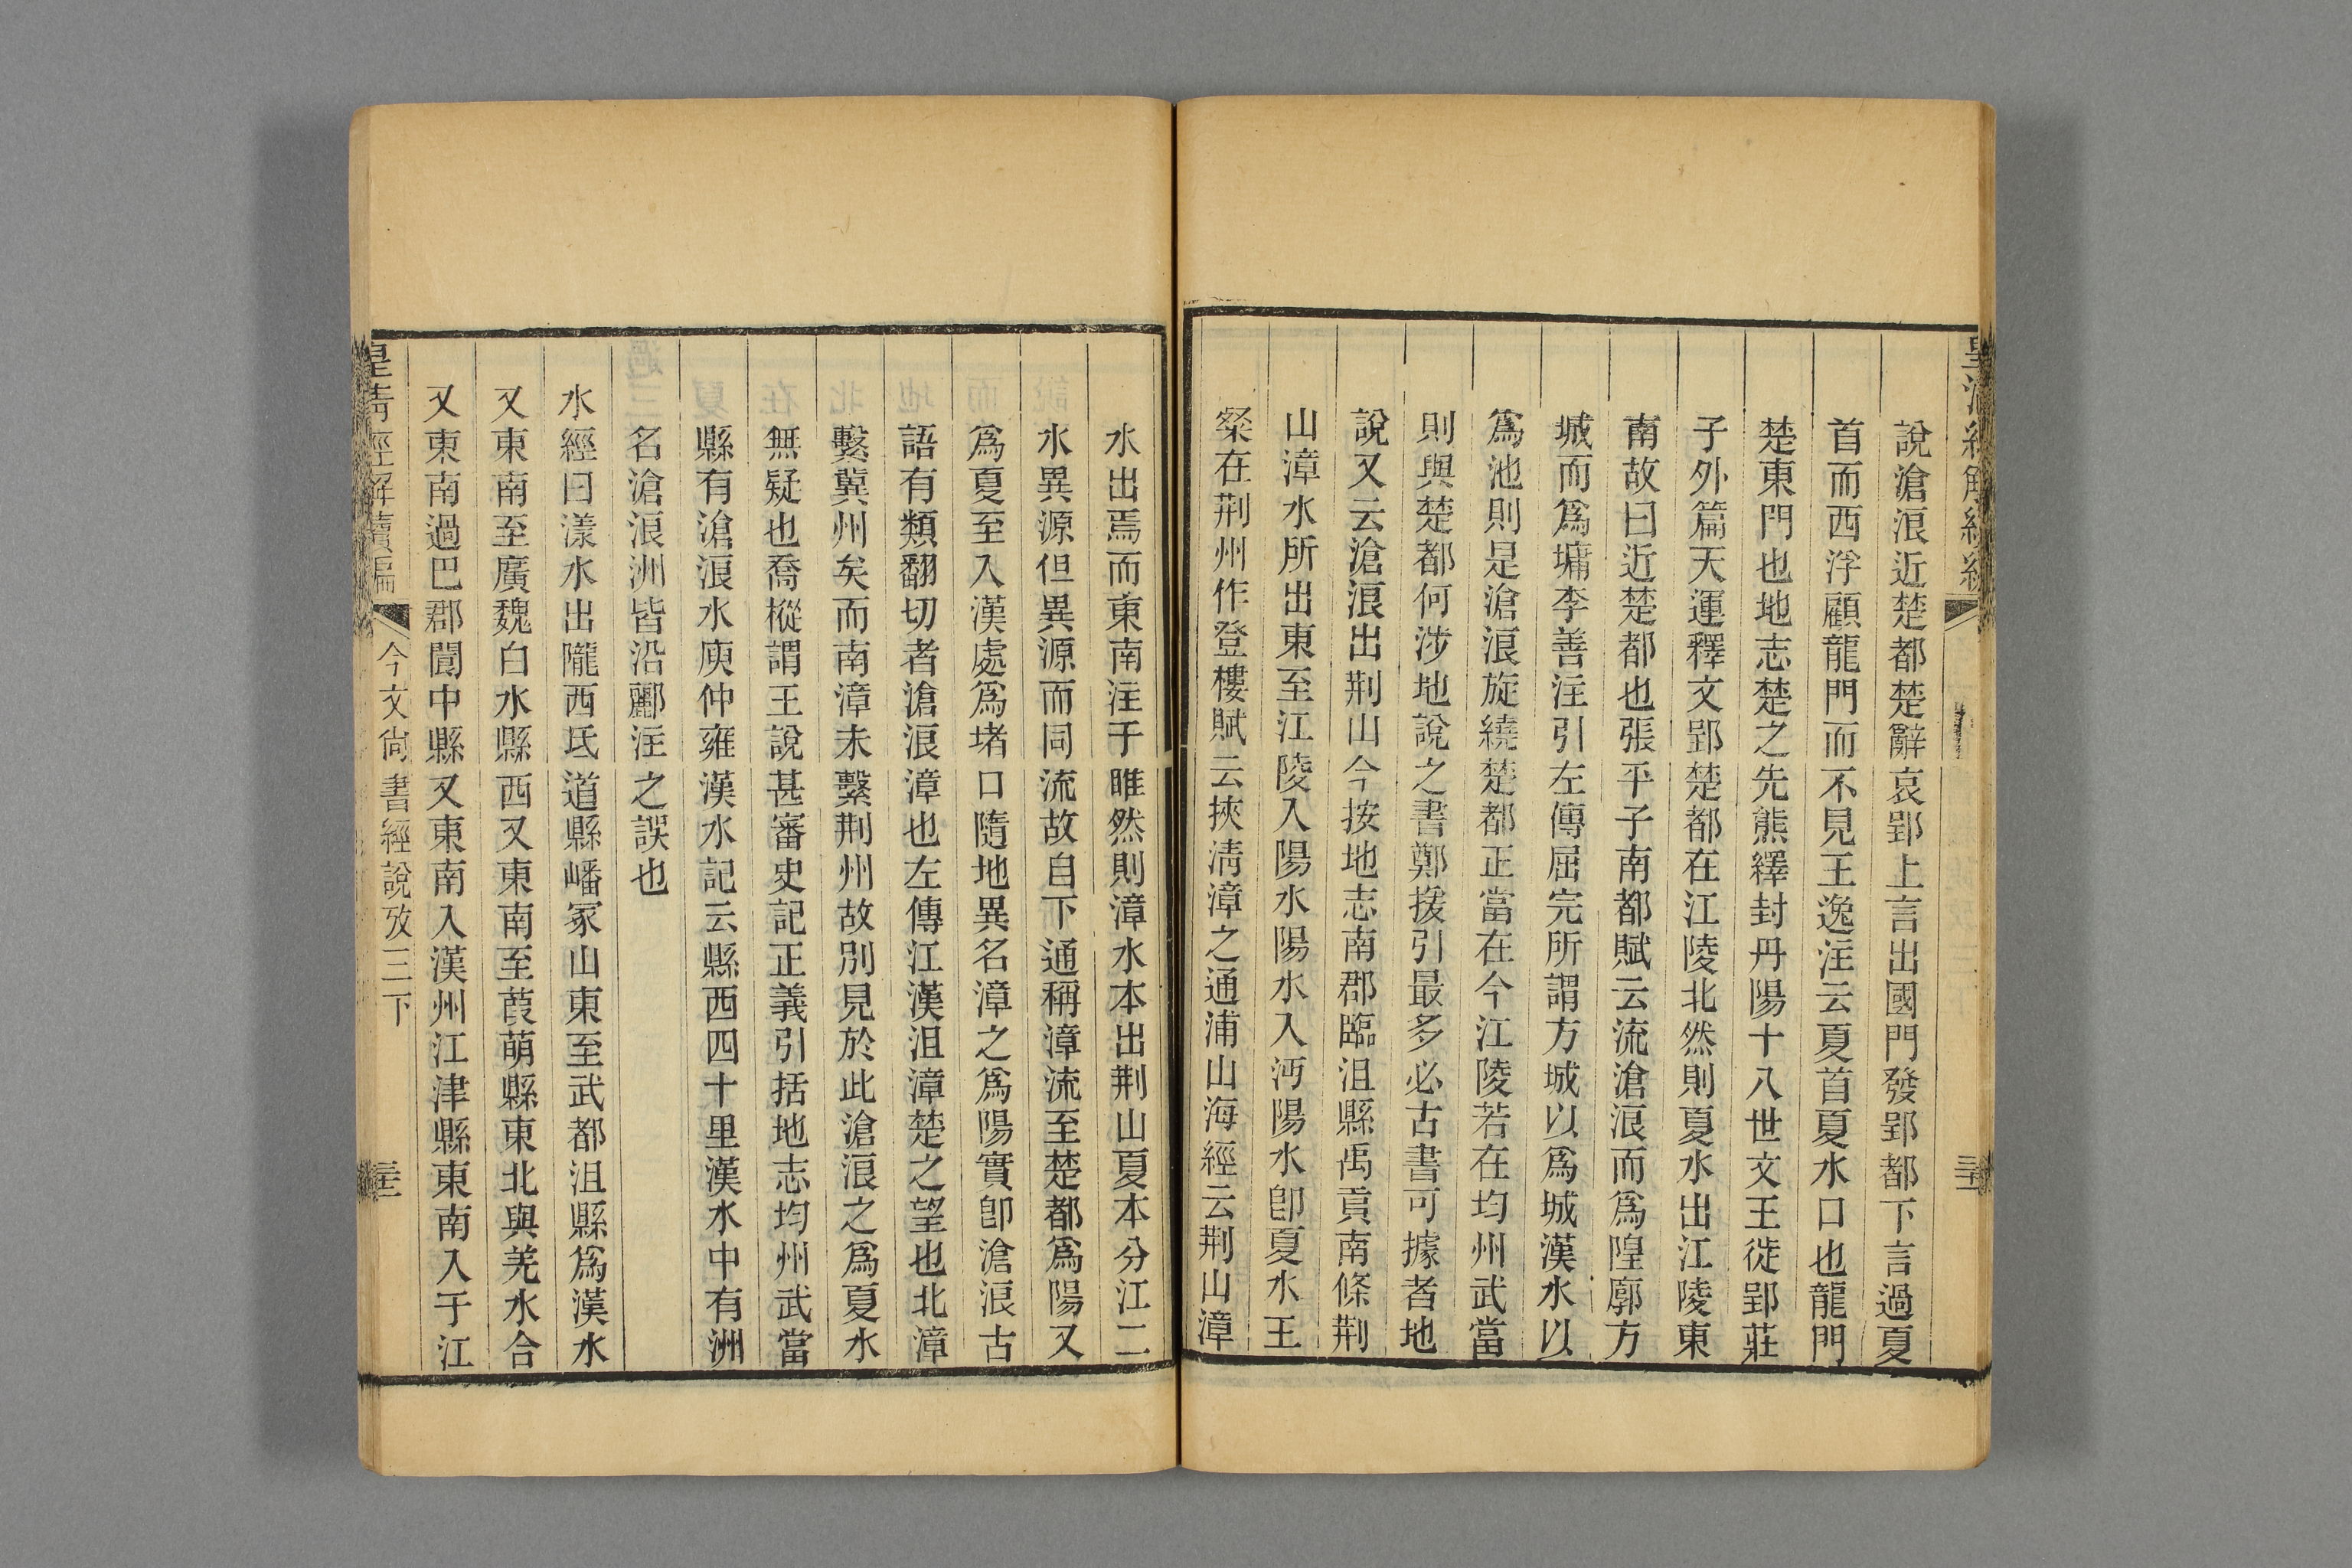 說滄浪近楚都楚辭哀郢上言出國門發郢都下言過夏
首而西浮顧龍門而不見王逸注云夏首夏水口也龍門
楚東門也地志楚之先熊繹封丹陽十八世文王徙郢莊
子外篇天運釋文郢楚都在江陵北然則夏水出江陵東
南故曰近楚都也張平子南都賦云流滄浪而爲隍廓方
城而爲墉李善注引左傳屈完所謂方城以爲城漢水以
爲池則是滄浪旋繞楚都正當在今江陵若在均州武當
則與楚都何涉地說之書鄭援引最多必古書可據者地
說又云滄浪出荆山今按地志南郡臨沮縣禹貢南條荆
山漳水所出東至江陵入陽水陽水入沔陽水卽夏水王
粲在荆州作登樓賦云挾淸漳之通浦山海經云荆山漳
水出焉而東南注于睢然則漳水本出荆山夏本分江二
水異源但異源而同流故自下通稱漳流至楚都爲陽又
爲夏至入漢處爲堵口隨地異名漳之爲陽實卽滄浪古
語有類翻切者滄浪漳也左傳江漢沮漳楚之望也北漳
繫冀州矣而南漳未繫荆州故別見於此滄浪之爲夏水
無疑也喬樅謂王說甚審史記正義引括地志均州武當
縣有滄浪水庾仲雍漢水記云縣西四十里漢水中有洲
名滄浪洲皆沿酈注之誤也
水經曰漾水出隴西氐道縣嶓冢山東至武都沮縣爲漢水
又東南至廣魏白水縣西又東南至葭萌縣東北與羌水合
又東南過巴郡閬中縣又東南入漢州江津縣東南入于江
皇淸經解續編
今文尙書經說攷三下